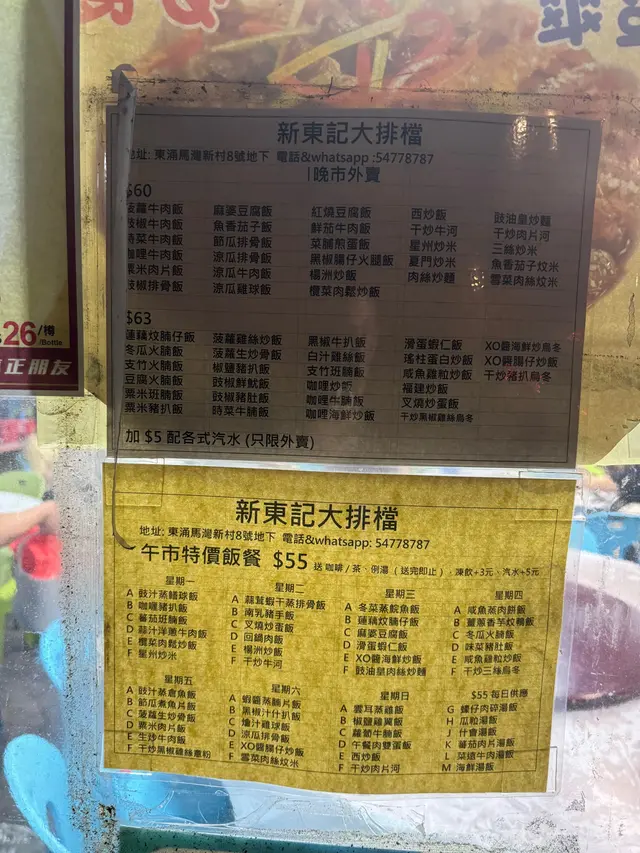 26/樽
/Bottle
正朋友
新東記大排檔
地址: 東涌馬灣新村8號地下 電話&whatsapp :54778787
晚市外賣
$60
菠蘿牛肉飯 麻婆豆腐飯 紅燒豆腐飯 西炒飯 豉油皇炒麵
豉椒牛肉飯 魚香茄子飯 鮮茄牛肉飯 干炒牛河 干炒肉片河
時菜牛肉飯 節瓜排骨飯 菜脯煎蛋飯 星州炒米 三絲炒米
咖喱牛肉飯 涼瓜排骨飯 黑椒腸仔火腿飯 夏門炒米 魚香茄子炆米
粟米肉片飯 涼瓜牛肉飯 楊洲炒飯 肉絲炒麵 雪菜肉絲炆米
豉椒排骨飯 涼瓜雞球飯 欖菜肉鬆炒飯
$63
蓮藕炆腩仔飯 菠蘿雞絲炒飯 黑椒牛扒飯 滑蛋蝦仁飯 XO醬海鮮炒烏冬
冬瓜火腩飯 菠蘿生炒骨飯 白汁雞絲飯 瑤柱蛋白炒飯 XO醬腸仔炒飯
支竹火腩飯 椒鹽豬扒飯 支竹班腩飯 咸魚雞粒炒飯 干炒豬扒烏冬
豆腐火腩飯 豉椒鮮魷飯 咖哩炒飯 福建炒飯
粟米班腩飯 豉椒豬肚飯 咖哩牛腩飯 叉燒炒蛋飯
粟米豬扒飯 時菜牛腩飯 咖哩海鮮炒飯 干炒黑椒雞絲烏冬
加 $5 配各式汽水 (只限外賣)
新東記大排檔
地址: 東涌馬灣新村8號地下 電話&whatsapp: 54778787
午市特價飯餐 $55 送 咖啡 / 茶、例湯 ( 送完即止 ) , 凍飲+3元、汽水+5元
星期一 星期二 星期三 星期四
A 豉汁蒸鱔球飯 A 蒜茸蝦干蒸排骨飯 A 冬菜蒸鯇魚飯 A 咸魚蒸肉餅飯
B 咖喱豬扒飯 B 南乳豬手飯 B 蓮藕炆腩仔飯 B 薑蔥香芋炆鴨飯
C 蕃茄班腩飯 C 叉燒炒蛋飯 C 麻婆豆腐飯 C 冬瓜火腩飯
D 蒜汁洋蔥牛肉飯 D 回鍋肉飯 D 滑蛋蝦仁飯 D 味菜豬肚飯
E 欖菜肉鬆炒飯 E 楊洲炒飯 E XO醬海鮮炒飯 E 咸魚雞粒炒飯
F 星州炒米 F 干炒牛河 F 豉油皇肉絲炒麵 F 干炒三絲烏冬
星期五 星期六 星期日 $55 每日供應
A 豉汁蒸倉魚飯 A 蝦醬蒸腩片飯 A 雲耳蒸雞飯 G 鹹仔肉碎湯飯
B 節瓜煮魚片飯 B 黑椒汁什扒飯 B 椒鹽雞翼飯 H 瓜粒湯飯
C 菠蘿生炒骨飯 C 燴汁雞球飯 C 蘿蔔牛腩飯 J 什會湯飯
D 粟米肉片飯 D 涼瓜排骨飯 D 午餐肉雙蛋飯 K 蕃茄肉片湯飯
E 生炒牛肉飯 E XO醬腸仔炒飯 E 西炒飯 L 菜遠牛肉湯飯
F 干炒黑椒雞絲意粉 F 雪菜肉絲炆米 F 干炒肉片河 M 海鮮湯飯